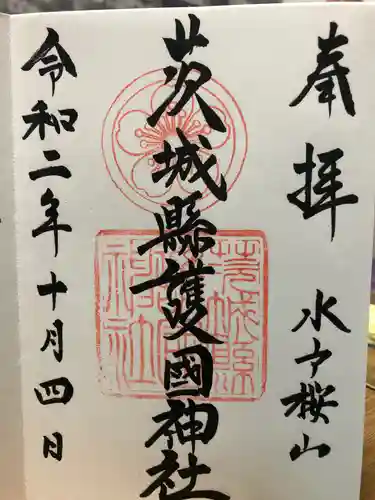 奉拝
水戸桜山
茨城縣護國神社
令和二年十月四日
茨城縣護國神社